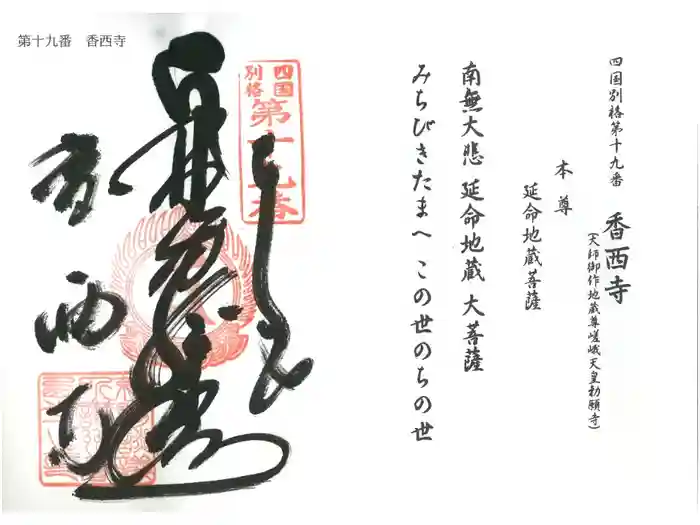 第十九番 香西寺
四国
別格
第十九番
香西寺
四国別格第十九番 香西寺
(大師御作地蔵尊嵯峨天皇勅願寺)
本尊
延命地蔵菩薩
南無大悲 延命地蔵 大菩薩
みちびきたまへ この世のちの世